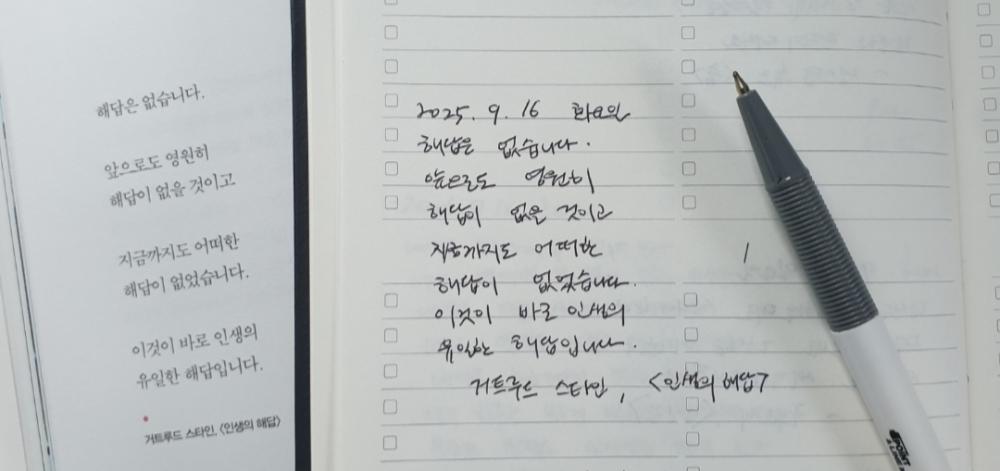 해답은 없습니다.
앞으로도 영원히
해답이 없을 것이고
지금까지도 어떠한
해답이 없었습니다.
이것이 바로 인생의
유일한 해답입니다.
거트루드 스타인, <인생의 해답>
2025. 9. 16 화요일
해답은 없습니다.
앞으로도 영원히
해답이 없을 것이고
지금까지도 어떠한
해답이 없었습니다.
이것이 바로 인생의
유일한 해답입니다.
거트루드 스타인, <인생의 해답>